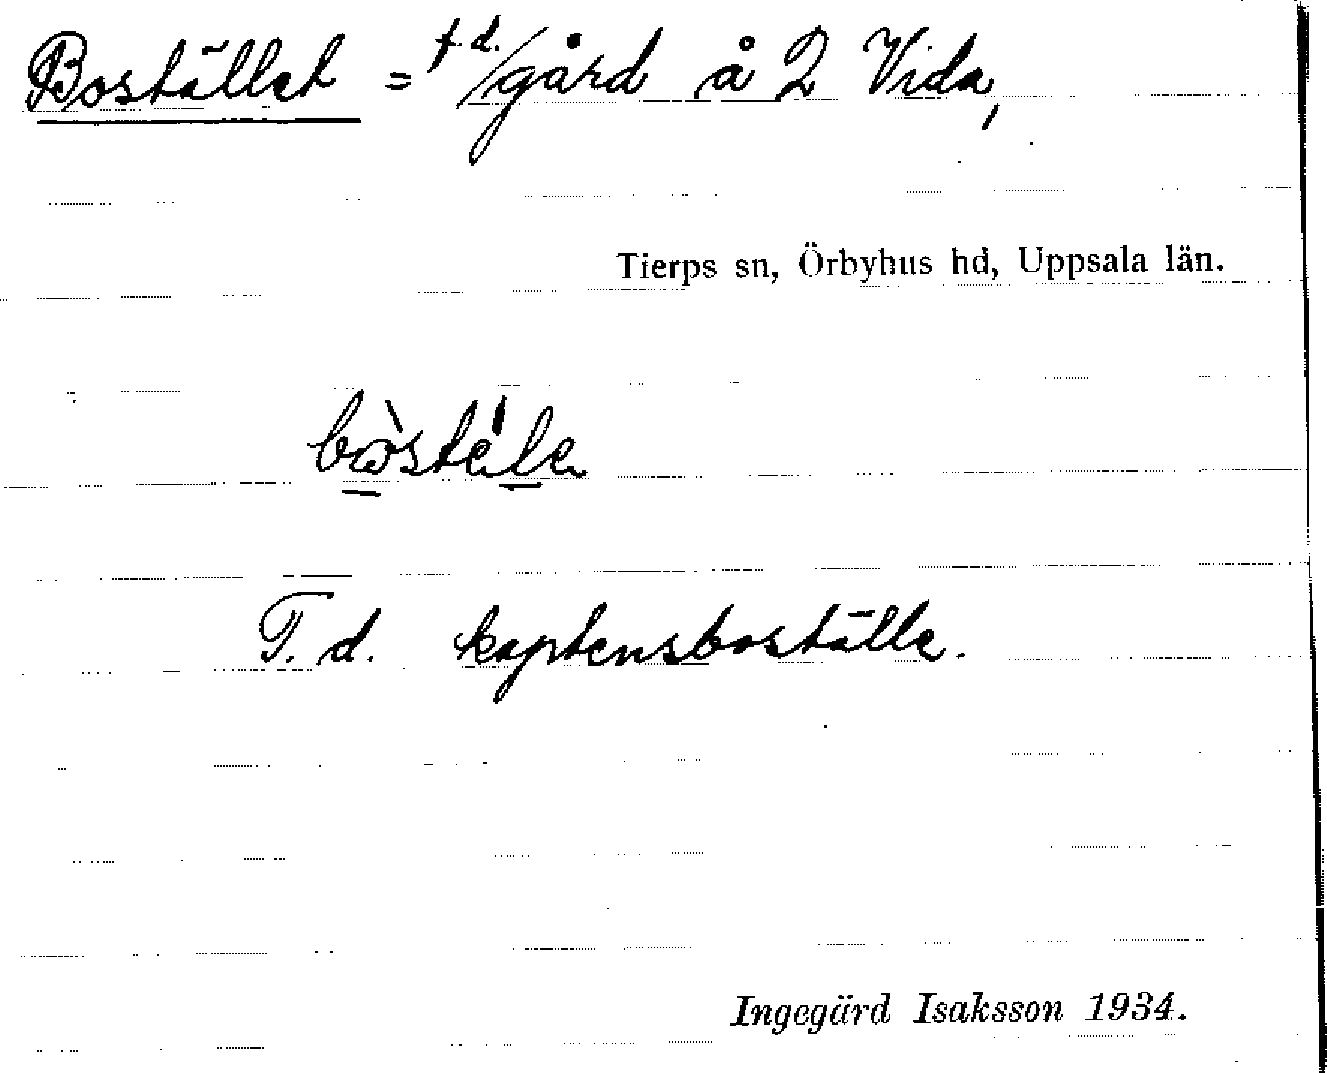 Bostället = f.d. gård å 2 Vida,
Tierps sn, Örbyhus hd, Uppsala län.
F. d. kaptensboställe.
Ingegärd Isaksson 1934.